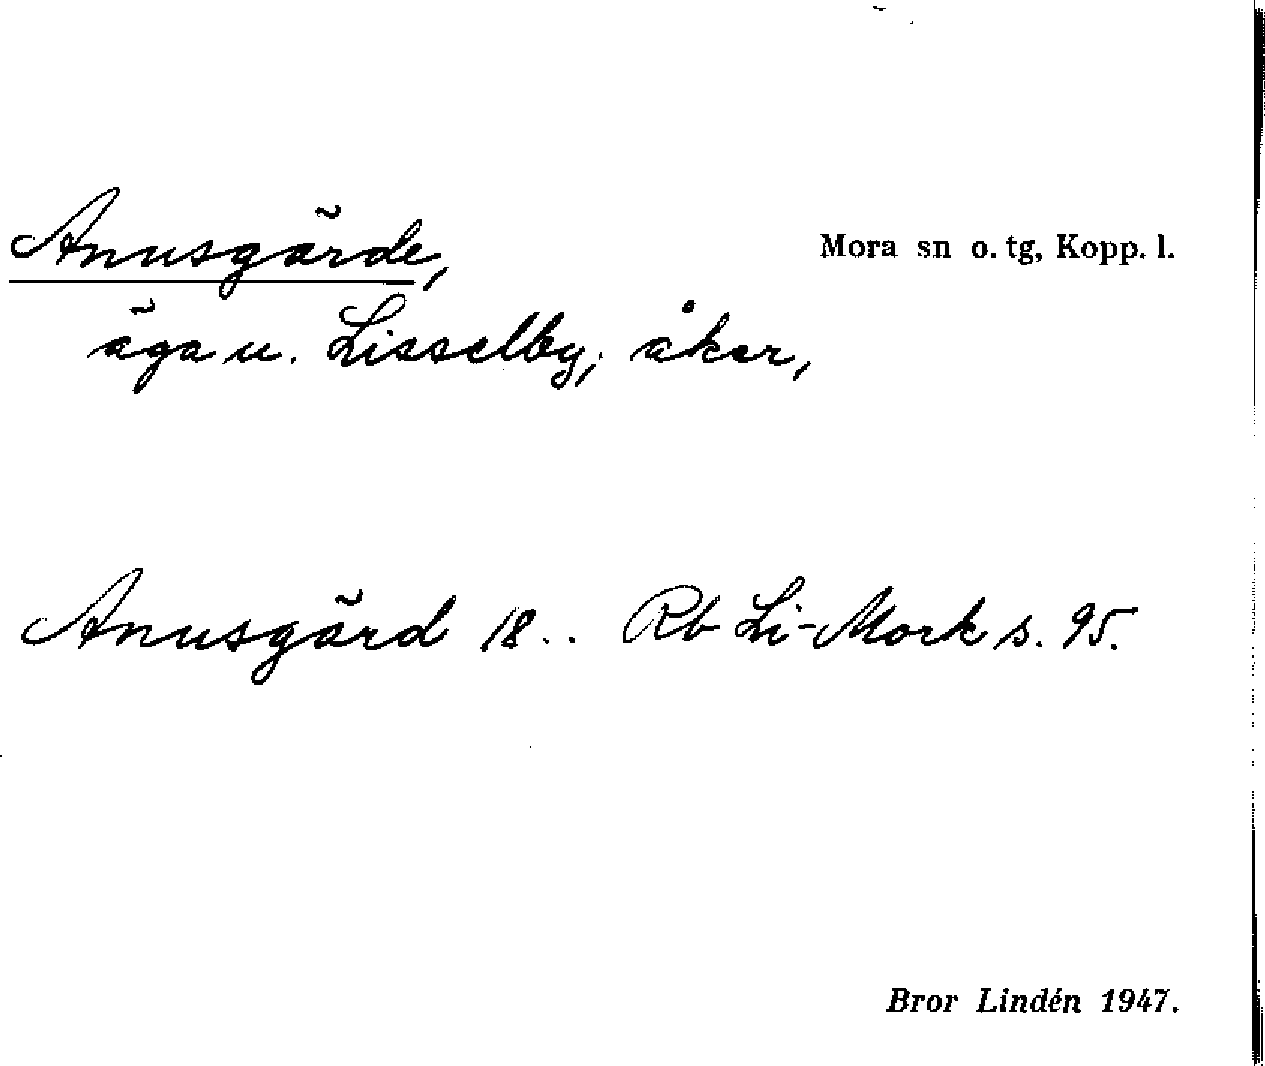 Anusgärde,
Mora sn o. tg, Kopp. l.
äga u. Lisselby; åker,
Anusgärd 18.. Rb Li-Mork s. 95.
Bror Lindén 1947.